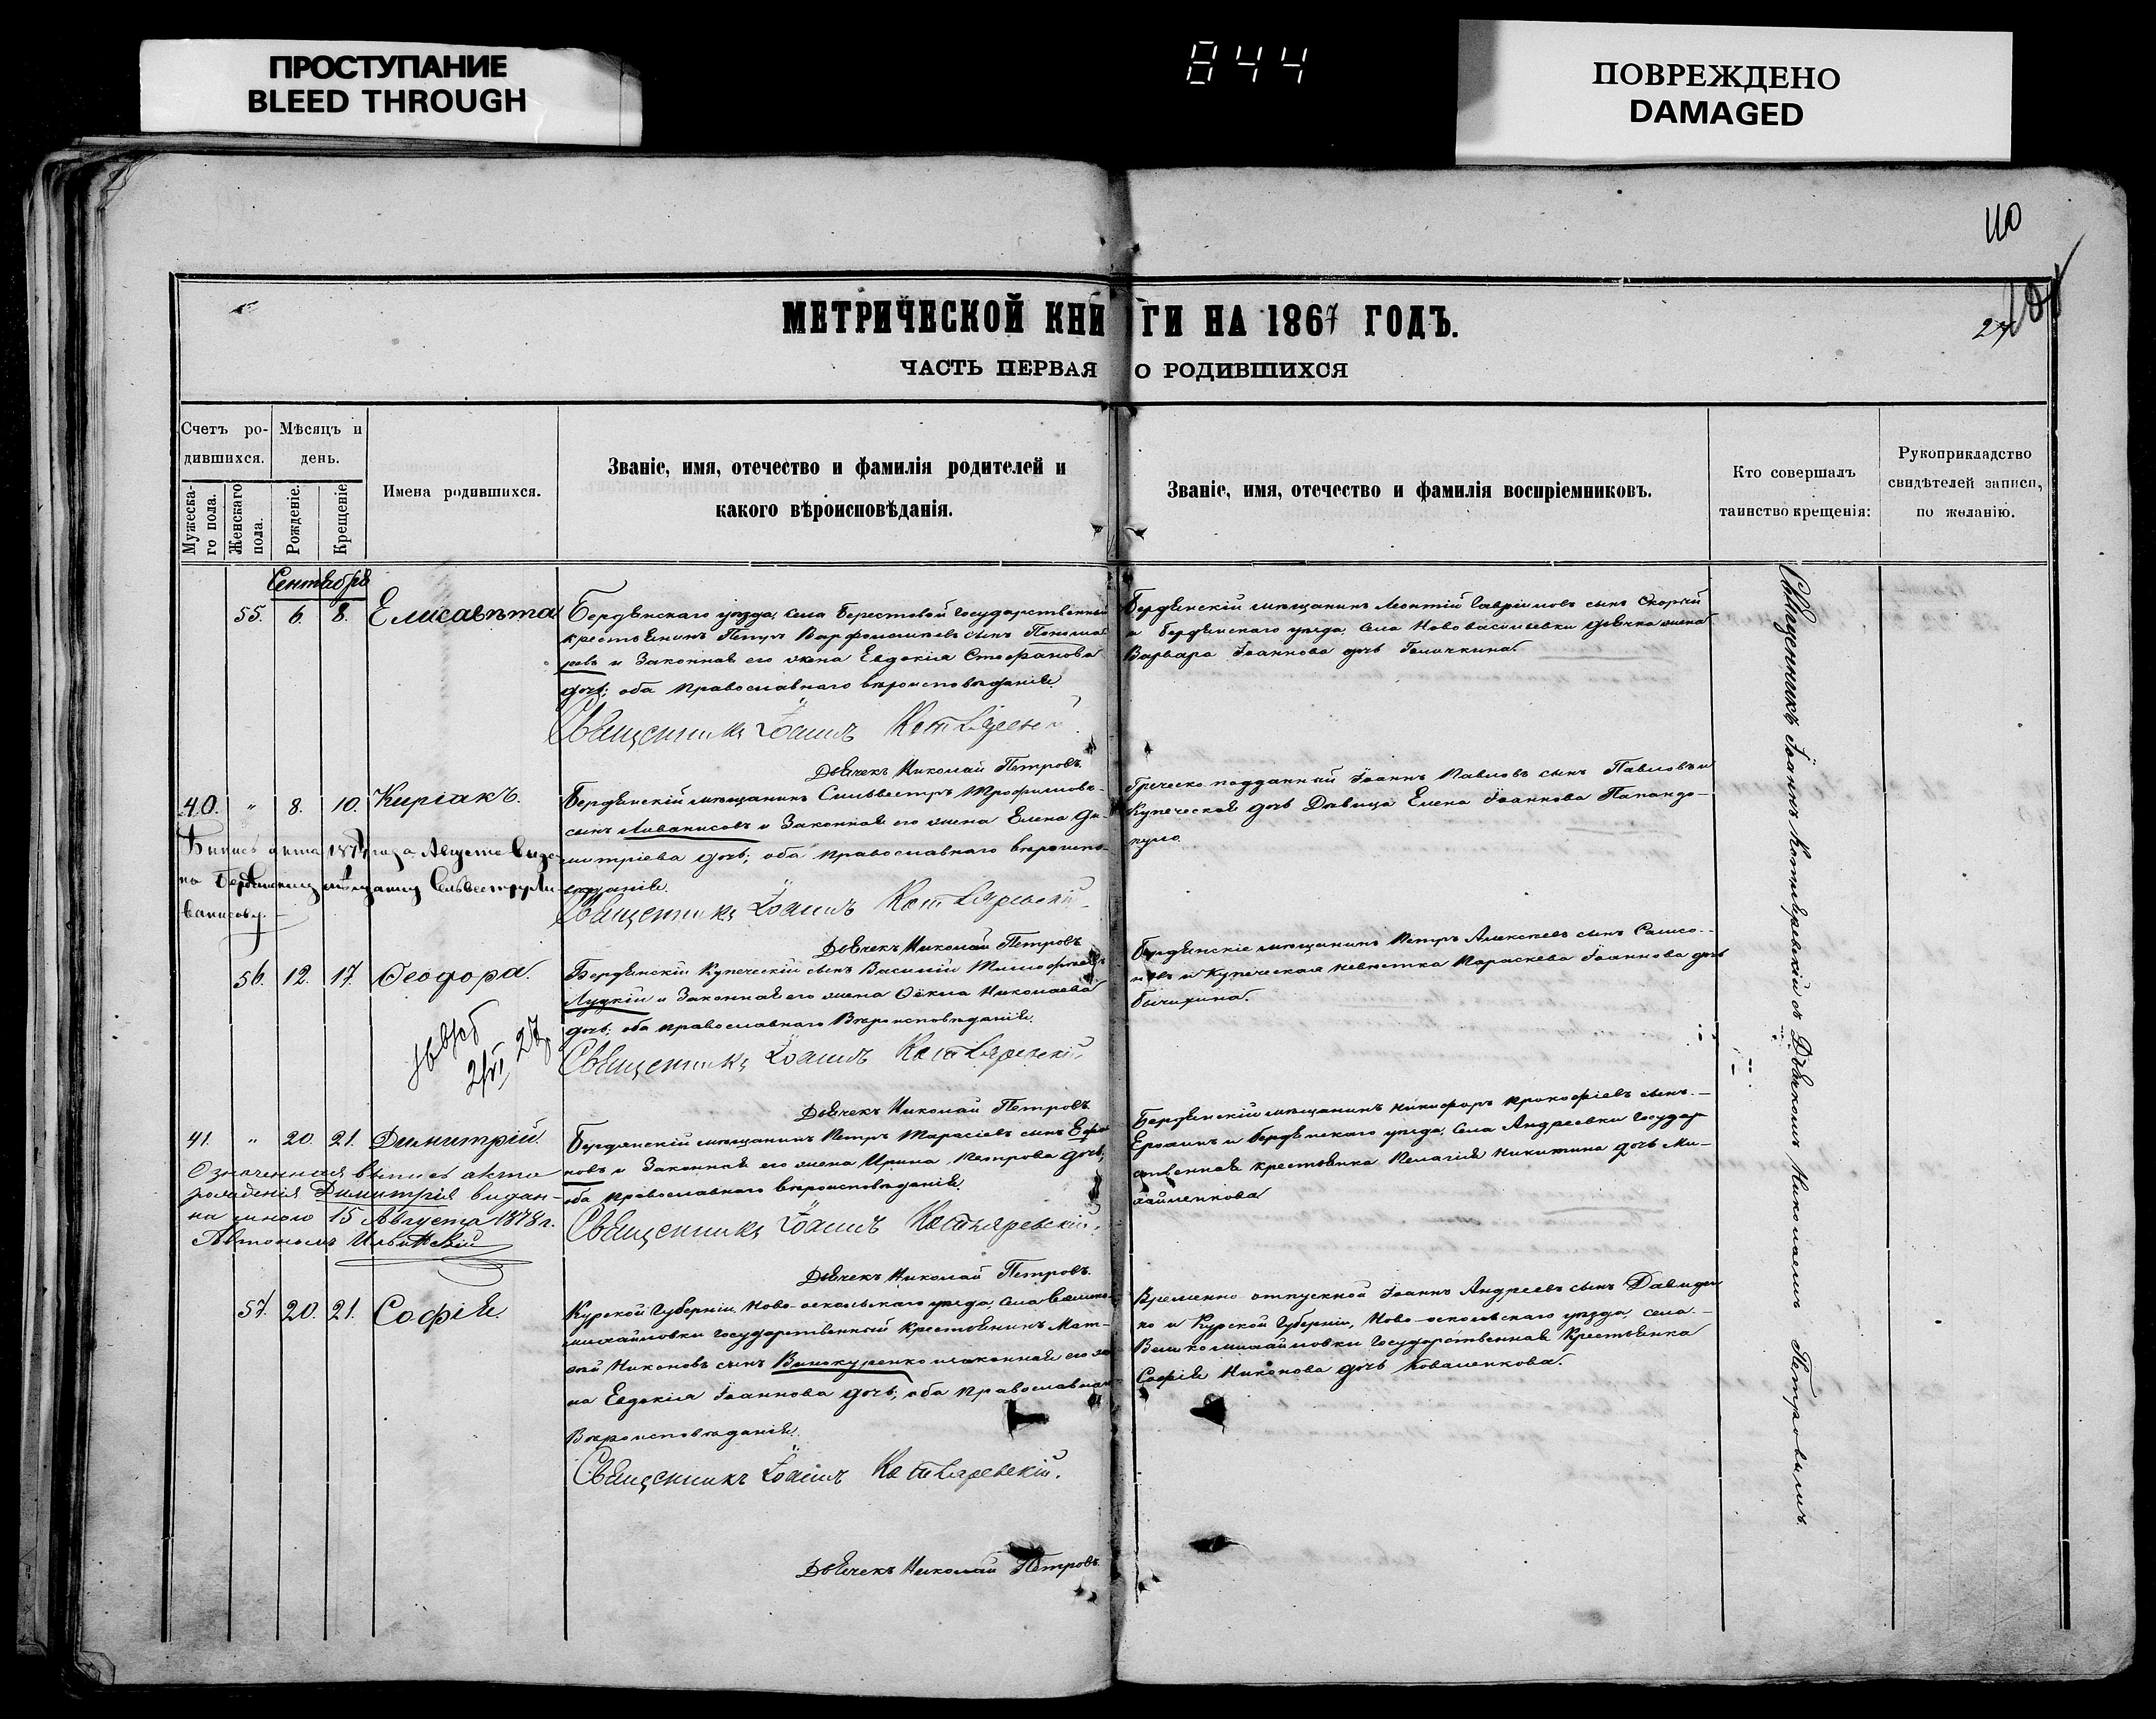 ПРОСТУПАНИЕ
BLEED THROUGH
844
ПОВРЕЖДЕНО
DAMAGED
110
МЕТРИЧЕСКОЙ КНИГИ НА 1867 ГОДЪ.
27
ЧАСТЬ ПЕРВАЯ О РОДИВШИХСЯ
Счетъ ро-
дившихся.
Мужеска-
го пола.
Женскаго
пола.
Мѣсяцъ и
день.
Рожденіе.
Крещеніе
Имена родившихся.
Званіе, имя, отечество и фамилія родителей и
какого вѣроисповѣданія.
Званіе, имя, отечество и фамилія воспріемниковъ.
Кто совершалъ
таинство крещенія:
Рукоприкладство
свидѣтелей записи,
по желанію.
Сентября
55. 6. 8. Елисавѣта
Бердянскаго уѣзда, села Берестовой государственный
крестьянинъ Петръ Варфоломѣевъ сынъ Пономаревъ
и законная его жена Евдокія Стефанова
дочь; оба православнаго вѣроисповѣданія.
Священникъ Іоаннъ Котляревскій
Дьячекъ Николай Петровъ.
Бердянскій мѣщанинъ Леонтій Гавріиловъ сынъ
и Бердянскаго уѣзда, села Нововасильевки дьячка жена
Варвара Іоаннова дочь
40. " 8. 10. Киріакъ.
Бердянскій мѣщанинъ Сильвестръ Трофимовъ
сынъ Ливанисовъ и законная его жена Елена Ди-
митріева дочь; оба православнаго вѣроиспо-
вѣданія.
Священникъ Іоаннъ Котляревскій
Дьячекъ Николай Петровъ
Греческо подданный Іоаннъ Павловъ сынъ Павловъ и
купеческая дочь дѣвица Елена Іоаннова Папандо-
пуло.
года Августа
по Бердянскому мѣщанину Сильвестру Ли-
ванисову.
56. 12. 17. Ѳеодора.
Бердянскій купеческій сынъ Василій
Луцкій и законная его жена Ѳекла Николаева
дочь; оба православнаго вѣроисповѣданія.
Священникъ Іоаннъ Котляревскій
Дьячекъ Николай Петровъ.
Бердянскіе мѣщанинъ Петръ Алексѣевъ сынъ Самсо-
новъ и купеческая невѣстка Параскева Іоаннова дочь
41. " 20. 21. Димитрій.
Бердянскій мѣщанинъ Петръ Тарасіевъ сынъ
новъ и законная его жена Ирина Петрова дочь;
оба православнаго вѣроисповѣданія.
Священникъ Іоаннъ Котляревскій.
Дьячекъ Николай Петровъ.
Бердянскій мѣщанинъ Никифоръ Прокофіевъ сынъ
и Бердянскаго уѣзда, села Андреевки государ-
ственная крестьянка Пелагія Никитина дочь Ми-
хайленкова
Означенная выпись акта
рожденія Димитрія выдан-
на мною 15 Августа 1878 г.
57. 20. 21. Софія.
Курской Губерніи, Ново-оскольскаго уѣзда, села Велико-
михайловки государственный крестьянинъ Мат-
вѣй Никоновъ сынъ Винокуренко и законная его же-
на Евдокія Іоаннова дочь; оба православнаго
вѣроисповѣданія.
Священникъ Іоаннъ Котляревскій.
Дьячекъ Николай Петровъ.
Временно отпускной Іоаннъ Андреевъ сынъ Давиден-
ко и Курской Губерніи, Ново-оскольскаго уѣзда, села
Великомихайловки государственная крестьянка
Софія Никонова дочь Коваленкова.
Священникъ Іоаннъ Котляревскій съ Дьячкомъ Николаемъ Петровымъ.